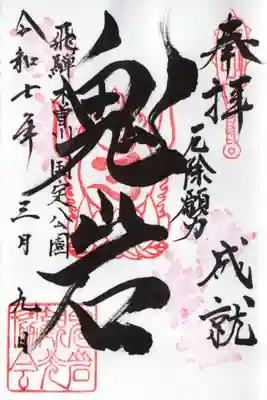 奉拝
厄除願力
成就
鬼岩
飛騨木曽川国定公園
令和七年三月九日